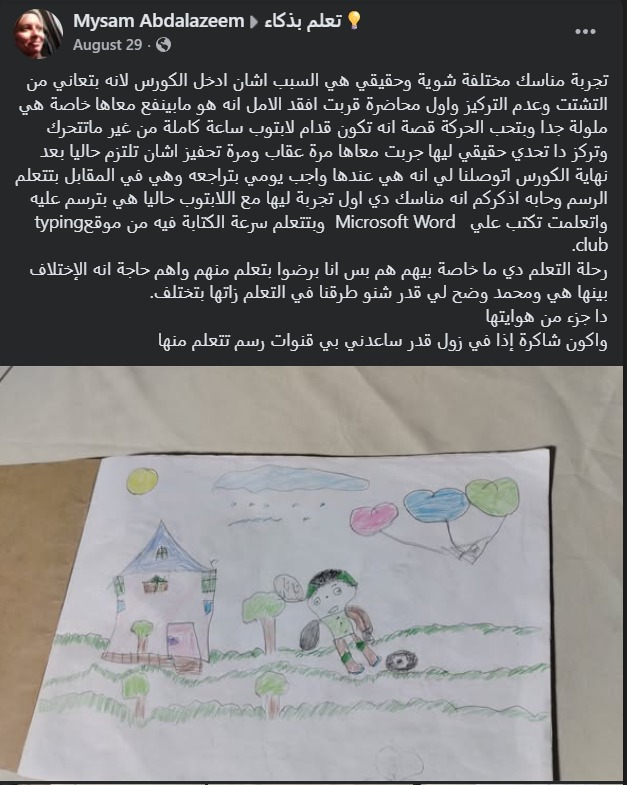 Mysam Abdalazeem ▸ تعلم بذكاء💡
August 29 ·
تجربة مناسك مختلفة شوية وحقيقي هي السبب اشان ادخل الكورس لانه بتعاني من
التشتت وعدم التركيز واول محاضرة قربت افقد الامل انه هو مابينفع معاها خاصة هي
ملولة جدا وبتحب الحركة قصة انه تكون قدام لابتوب ساعة كاملة من غير ماتتحرك
وتركز دا تحدي حقيقي ليها جربت معاها مرة عقاب ومرة تحفيز اشان تلتزم حاليا بعد
نهاية الكورس اتوصلنا لي انه هي عندها واجب يومي بتراجعه وهي في المقابل بتتعلم
الرسم وحابه اذكركم انه مناسك دي اول تجربة ليها مع اللابتوب حاليا هي بترسم عليه
واتعلمت تكتب علي Microsoft Word وبتتعلم سرعة الكتابة فيه من موقعtyping
club.
رحلة التعلم دي ما خاصة بيهم هم بس انا برضوا بتعلم منهم واهم حاجة انه الإختلاف
بينها هي ومحمد وضح لي قدر شنو طرقنا في التعلم زاتها بتختلف.
دا جزء من هوايتها
واكون شاكرة إذا في زول قدر ساعدني بي قنوات رسم تتعلم منها